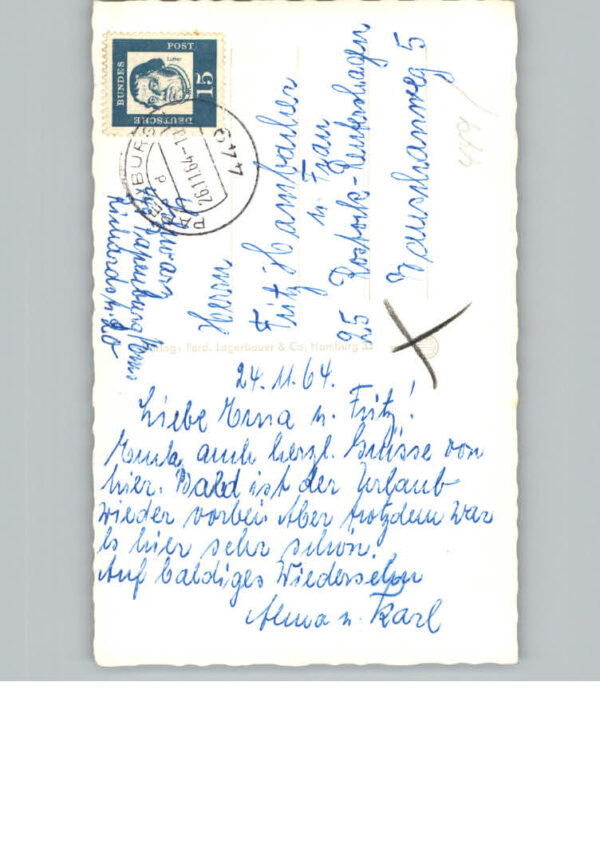 24.11.64.
Liebe Erna u. Fritz!
Euch auch herzl. Grüsse von
hier. Bald ist der Urlaub
wieder vorbei. Aber trotzdem war
es hier sehr schön.
Auf baldiges Wiedersehn
Alma u. Karl
Herrn
Fritz Hambacher
u. Frau
25 Rostock-Reutershagen
5
Schwarz
Papenburg/Ems
Richardstr. 20
DEUTSCHE
BUNDES
POST
15
Luther
449
PAPENBURG
26.11.64-1
d
Verlag: Ferd. Lagerbauer & Co. Hamburg 33